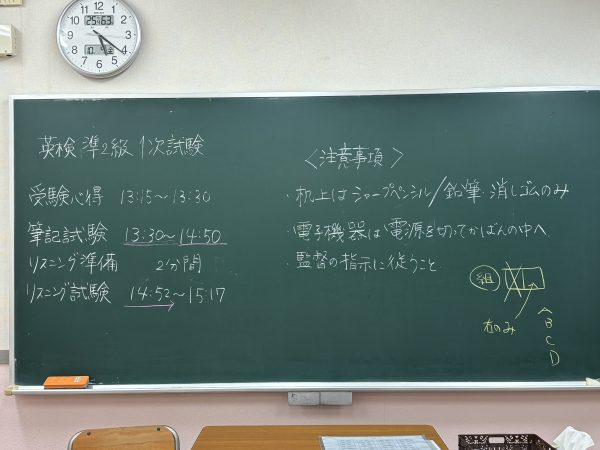 英検 準2級 1次試験
受験心得 13:15〜13:30
筆記試験 13:30〜14:50
リスニング準備 2分間
リスニング試験 14:52〜15:17
〈注意事項〉
・机上はシャープペンシル/鉛筆・消しゴムのみ
・電子機器は電源を切ってかばんの中へ
・監督の指示に従うこと
組
右のみ
A
B
C
D